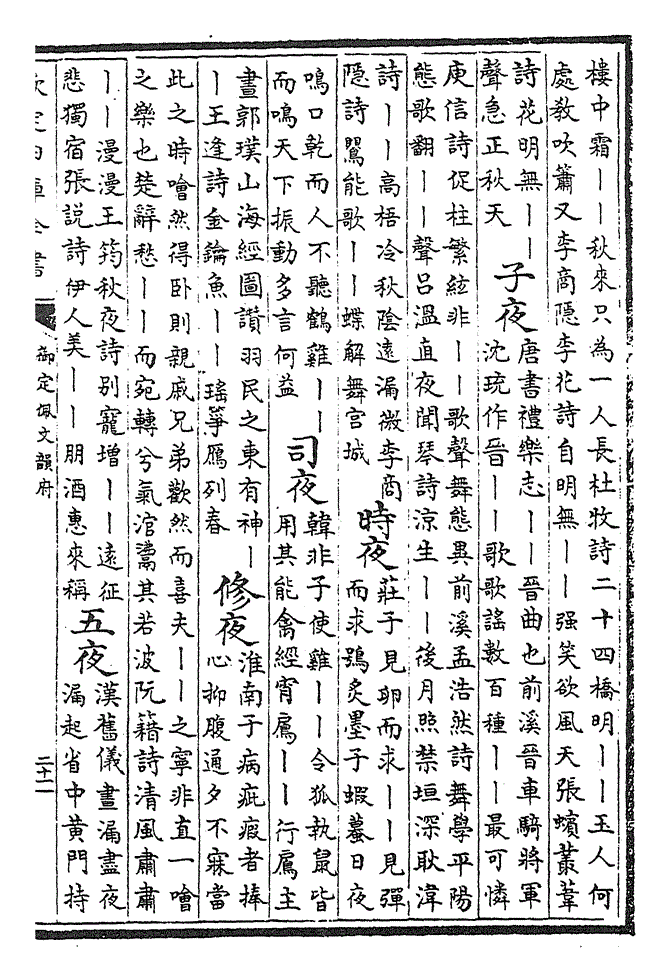 樓中霜丨丨秋來只為一人長杜牧詩二十四橋明丨丨玉人何
處教吹簫又李商隱李花詩自明無丨丨强笑欲風天張蠙叢葦
詩花明無丨丨
聲急正秋天
子夜
唐書禮樂志丨丨晉曲也前溪晉車騎將軍
沈珫作晉丨丨歌歌謠數百種丨丨最可憐
庾信詩促柱繁絃非丨丨歌聲舞態異前溪孟浩然詩舞學平陽
態歌翻丨丨聲呂溫直夜聞琴詩涼生丨丨後月照禁垣深耿湋
詩丨丨高梧冷秋陰遠漏微李商
隱詩鸎能歌丨丨蝶解舞宮城
時夜
莊子見卵而求丨丨見彈
而求鴞炙墨子蝦蟇日夜
鳴口乾而人不聽鶴雞丨丨
而鳴天下振動多言何益
司夜
韓非子使雞丨丨令狐執鼠皆
用其能禽經宵鳸丨丨行鳸主
晝郭璞山海經圖讚羽民之東有神丨
丨王逢詩金鑰魚丨丨瑤箏鴈列春
修夜
淮南子病疵瘕者捧
心抑腹通夕不寐當
此之時噲然得卧則親戚兄弟歡然而喜夫丨丨之寧非直一噲
之樂也楚辭愁丨丨而宛轉兮氣涫鬻其若波阮籍詩清風肅肅
丨丨漫漫王筠秋夜詩别寵增丨丨遠征
悲獨宿張説詩伊人美丨丨朋酒惠來稱
五夜
漢舊儀晝漏盡夜
漏起省中黄門持
欽定四庫全書
御定佩文韻府
二十二